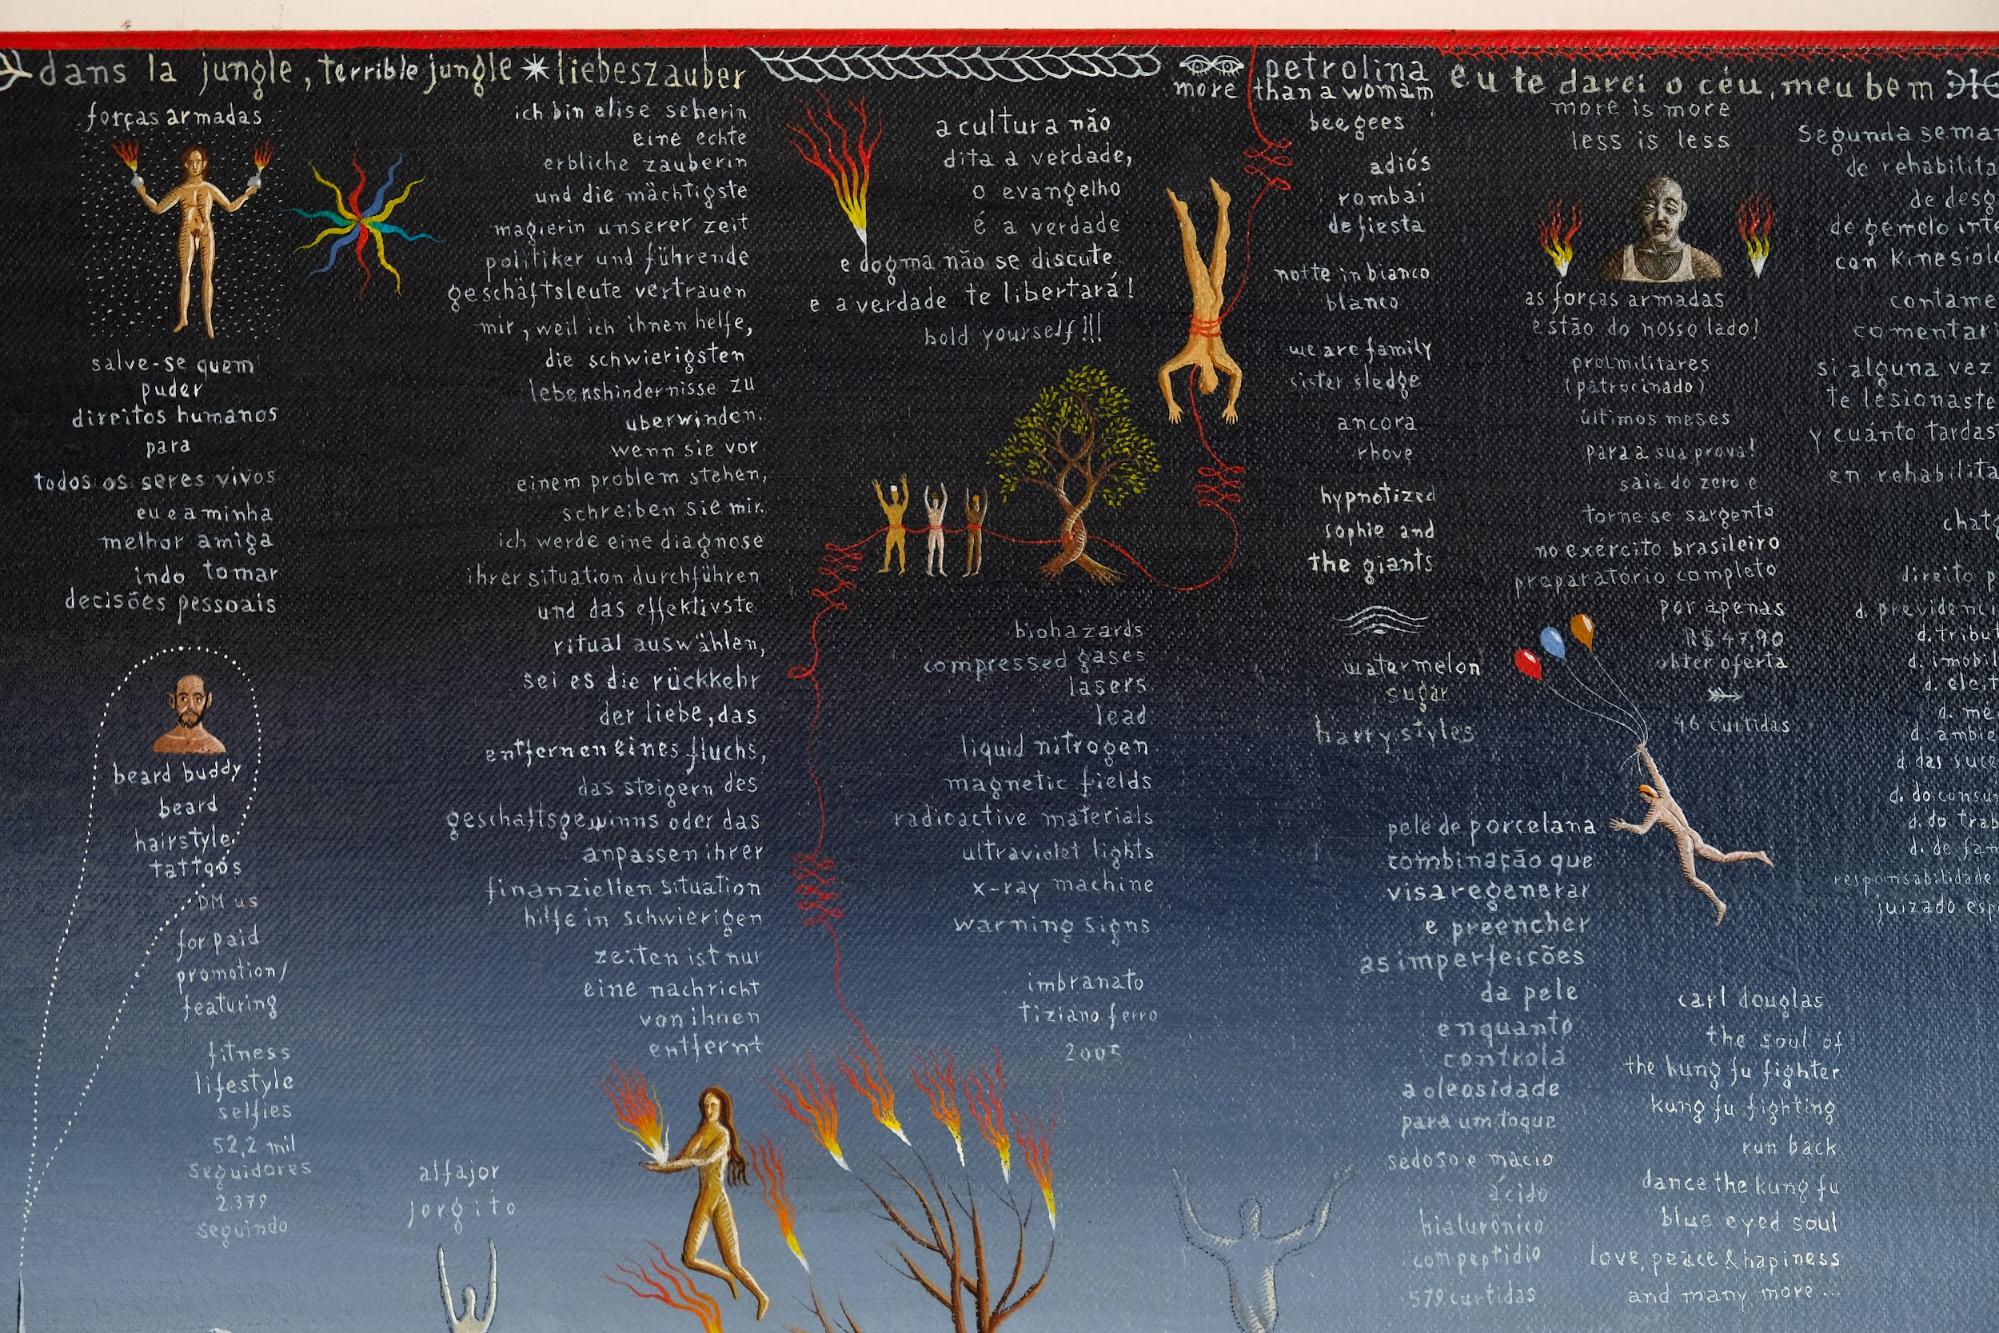 dans la jungle, terrible jungle * liebeszauber
forças armadas
salve-se quem
puder
direitos humanos
para
todos os seres vivos
eu e a minha
melhor amiga
indo tomar
decisões pessoais
beard buddy
beard
hairstyle
tattoos
DM us
for paid
promotion/
featuring
fitness
lifestyle
selfies
52,2 mil
seguidores
2.379
seguindo
alfajor
jorgito
ich bin elise seherin
eine echte
erbliche zauberin
und die mächtigste
magierin unserer zeit
politiker und führende
geschäftsleute vertrauen
mir, weil ich ihnen helfe,
die schwierigsten
lebenshindernisse zu
uberwinden.
wenn sie vor
einem problem stehen,
schreiben sie mir.
ich werde eine diagnose
ihrer situation durchführen
und das effektivste
ritual auswählen,
sei es die rückkehr
der liebe, das
entfernen eines fluchs,
das steigern des
geschaftsgewinns oder das
anpassen ihrer
finanziellen situation
hilfe in schwierigen
zeiten ist nur
eine nachricht
von ihnen
entfernt
a cultura não
dita a verdade,
o evangelho
é a verdade
e dogma não se discute
e a verdade te libertará!
bold yourself!!!
biohazards
compressed gases
lasers
lead
liquid nitrogen
magnetic fields
radioactive materials
ultraviolet lights
x-ray machine
warning signs
imbranato
tiziano ferro
2005
petrolina
more than a womam
bee gees
adiós
rombai
de fiesta
notte in bianco
blanco
we are family
sister sledge
ancora
rhove
hypnotized
sophie and
the giants
watermelon
sugar
harry styles
pele de porcelana
combinação que
visa regenerar
e preencher
as imperfeições
da pele
enquanto
controla
a oleosidade
para um toque
sedoso e macio
ácido
hialurônico
com peptidio
579 curtidas
eu te darei o céu, meu bem
more is more
less is less
as forças armadas
estão do nosso lado!
prolmilitares
(patrocinado)
últimos meses
para a sua prova!
saia do zero e
torne-se sargento
no exército brasileiro
preparatório completo
por apenas
R$ 47,90
obter oferta
46 curtidas
carl douglas
the soul of
the kung fu fighter
kung fu fighting
run back
dance the kung fu
blue eyed soul
love, peace & hapiness
and many more...
Segunda sema
de rehabilita
de desg
de gemelo inte
con Kinesiolo
contame
comentari
si alguna vez
te lesionaste
y cuánto tardas
en rehabilita
chatg
direito p
d. previdenci
d. tribut
d. imobil
d. eleit
d. me
d. ambie
d. das suce
d. do consu
d. do trab
d. de fam
responsabilidade
juizado esp